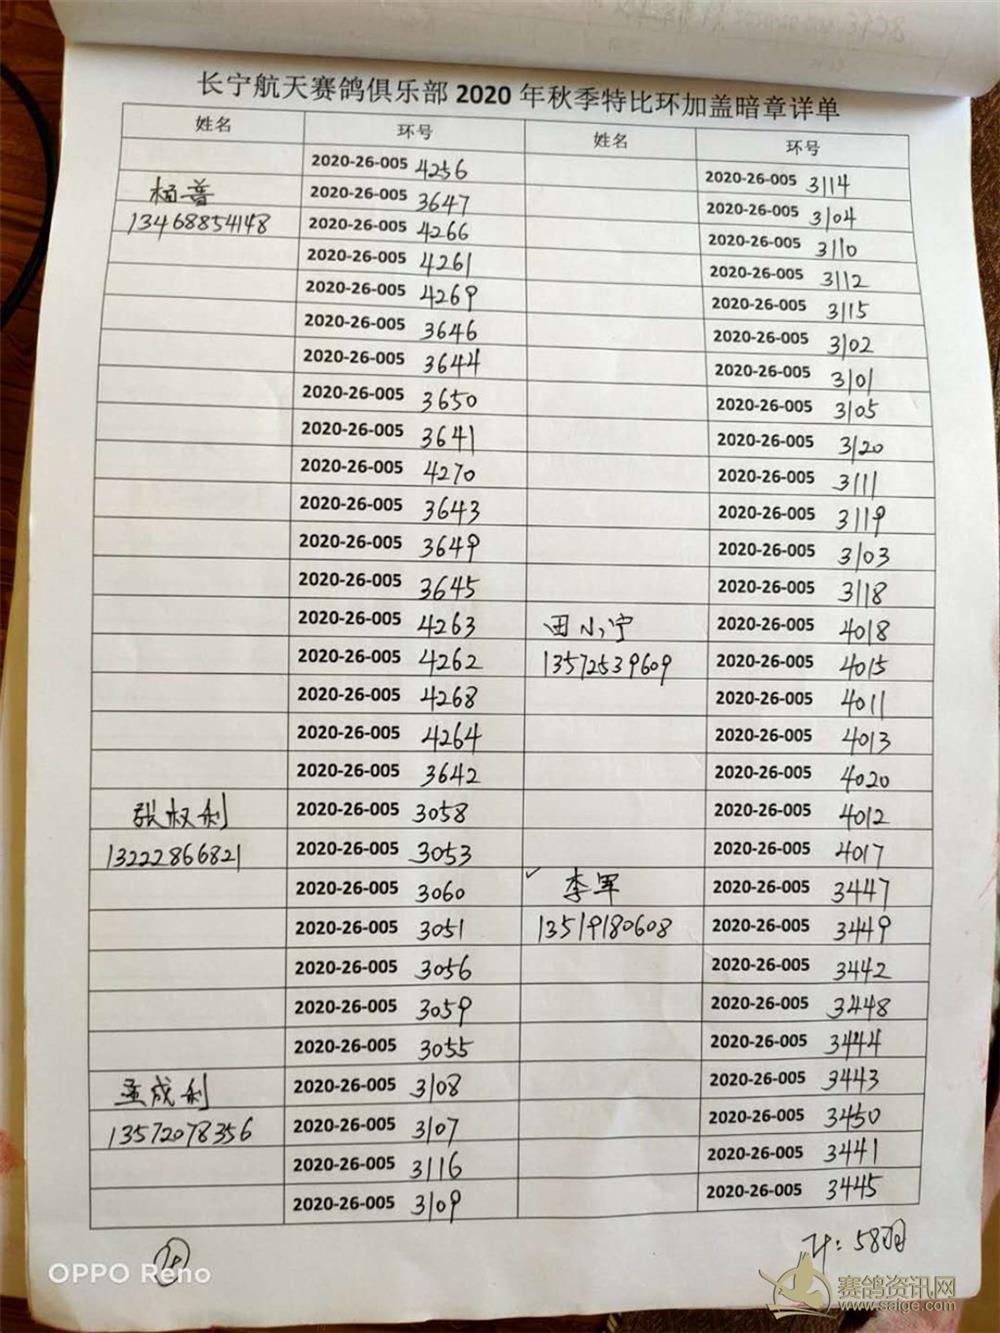 长宁航天赛鸽俱乐部 2020 年秋季特比环加盖暗章详单
姓名 环号 姓名 环号
2020-26-005 4256 2020-26-005 3114
杨普 2020-26-005 3647 2020-26-005 3104
13468854148 2020-26-005 4266 2020-26-005 3110
2020-26-005 4261 2020-26-005 3112
2020-26-005 4269 2020-26-005 3115
2020-26-005 3646 2020-26-005 3102
2020-26-005 3644 2020-26-005 3101
2020-26-005 3650 2020-26-005 3105
2020-26-005 3641 2020-26-005 3120
2020-26-005 4270 2020-26-005 3111
2020-26-005 3643 2020-26-005 3119
2020-26-005 3649 2020-26-005 3103
2020-26-005 3645 2020-26-005 3118
2020-26-005 4263 田小宁 2020-26-005 4018
2020-26-005 4262 13572539609 2020-26-005 4015
2020-26-005 4268 2020-26-005 4011
2020-26-005 4264 2020-26-005 4013
2020-26-005 3642 2020-26-005 4020
张权利 2020-26-005 3058 2020-26-005 4012
13222866821 2020-26-005 3053 2020-26-005 4017
2020-26-005 3060 李军 2020-26-005 3447
2020-26-005 3051 13519180608 2020-26-005 3449
2020-26-005 3056 2020-26-005 3442
2020-26-005 3059 2020-26-005 3448
2020-26-005 3055 2020-26-005 3444
孟成利 2020-26-005 3108 2020-26-005 3443
13572078356 2020-26-005 3107 2020-26-005 3450
2020-26-005 3116 2020-26-005 3441
2020-26-005 3109 2020-26-005 3445
计: 58羽
OPPO Reno
赛鸽资讯网
www.saige.com